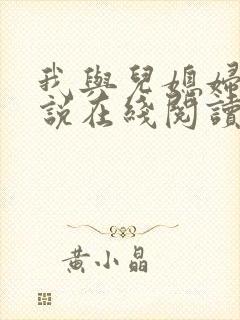 我與兒媳婦
說在綫閱讀
黄小晶